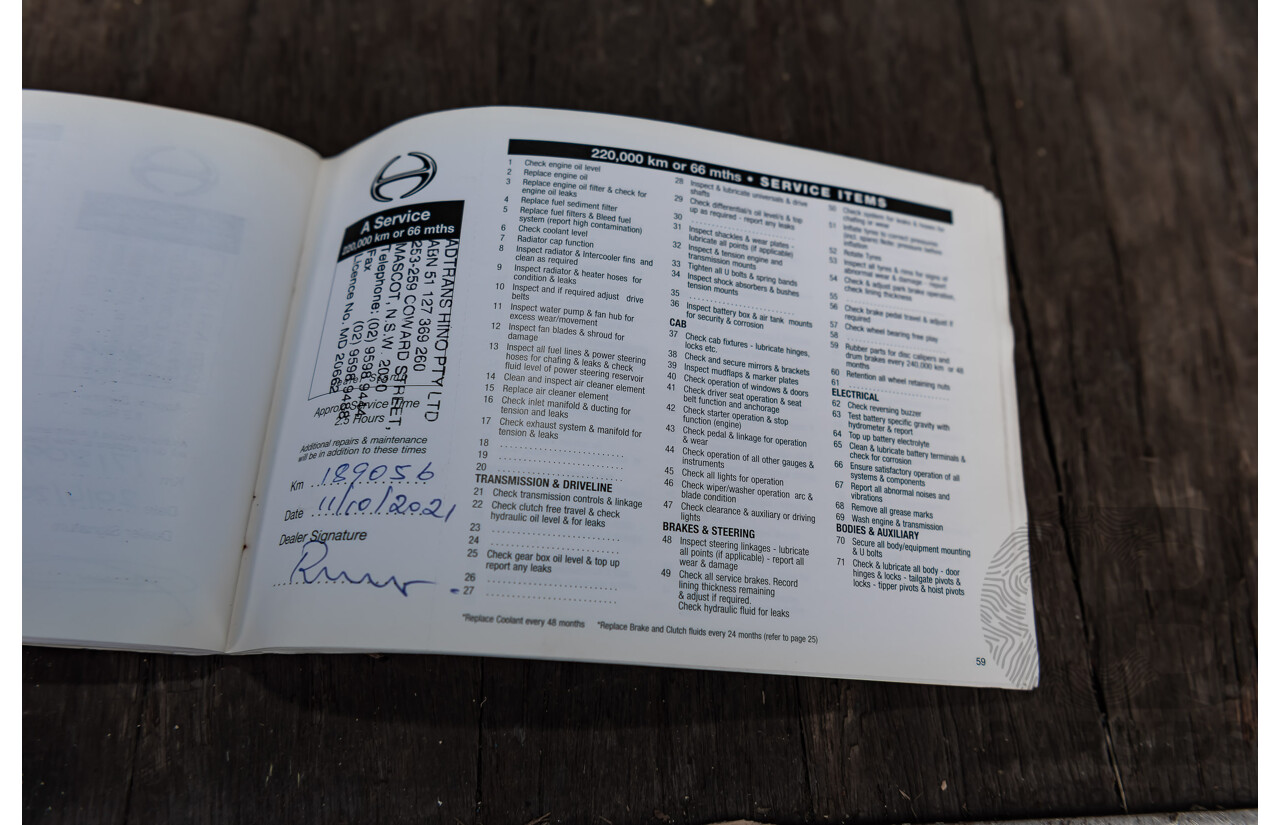 A Service
220,000 km or 66 mths
ADTRANS HINO PTY LTD
ABN 51 127 369 260
253-259 COWARD STREET,
MASCOT, N.S.W. 2020
Telephone: (02) 9598
Fax (02) 9598
Licence No. MD 20662
Approx Service Time
2.5 Hours
Additional repairs & maintenance
will be in addition to these times
Km 189056
Date 11/10/2021
Dealer Signature
220,000 km or 66 mths • SERVICE ITEMS
1 Check engine oil level
2 Replace engine oil
3 Replace engine oil filter & check for
engine oil leaks
4 Replace fuel sediment filter
5 Replace fuel filters & Bleed fuel
system (report high contamination)
6 Check coolant level
7 Radiator cap function
8 Inspect radiator & Intercooler fins and
clean as required
9 Inspect radiator & heater hoses for
condition & leaks
10 Inspect and if required adjust drive
belts
11 Inspect water pump & fan hub for
excess wear/movement
12 Inspect fan blades & shroud for
damage
13 Inspect all fuel lines & power steering
hoses for chafing & leaks & check
fluid level of power steering reservoir
14 Clean and inspect air cleaner element
15 Replace air cleaner element
16 Check inlet manifold & ducting for
tension and leaks
17 Check exhaust system & manifold for
tension & leaks
18 ..............................
19 ..............................
20 ..............................
TRANSMISSION & DRIVELINE
21 Check transmission controls & linkage
22 Check clutch free travel & check
hydraulic oil level & for leaks
23 ..............................
24 ..............................
25 Check gear box oil level & top up
report any leaks
26 ..............................
27 ..............................
28 Inspect & lubricate universals & drive
shafts
29 Check differential's oil level/s & top
up as required - report any leaks
30 ..............................
31 Inspect shackles & wear plates -
lubricate all points (if applicable)
32 Inspect & tension engine and
transmission mounts
33 Tighten all U bolts & spring bands
34 Inspect shock absorbers & bushes
tension mounts
35 ..............................
36 Inspect battery box & air tank mounts
for security & corrosion
CAB
37 Check cab fixtures - lubricate hinges,
locks etc.
38 Check and secure mirrors & brackets
39 Inspect mudflaps & marker plates
40 Check operation of windows & doors
41 Check driver seat operation & seat
belt function and anchorage
42 Check starter operation & stop
function (engine)
43 Check pedal & linkage for operation
& wear
44 Check operation of all other gauges &
instruments
45 Check all lights for operation
46 Check wiper/washer operation arc &
blade condition
47 Check clearance & auxiliary or driving
lights
BRAKES & STEERING
48 Inspect steering linkages - lubricate
all points (if applicable) - report all
wear & damage
49 Check all service brakes. Record
lining thickness remaining
& adjust if required.
Check hydraulic fluid for leaks
50 Check system for leaks & hoses for
chafing or wear
51 Inflate tyres to correct pressures
(incl. spare) Note: pressure before
inflation
52 Rotate Tyres
53 Inspect all tyres & rims for signs of
abnormal wear & damage - report
54 Check & adjust park brake operation,
check lining thickness
55 ..............................
56 Check brake pedal travel & adjust if
required
57 Check wheel bearing free play
58
59 Rubber parts for disc calipers and
drum brakes every 240,000 km or 48
months
60 Retention all wheel retaining nuts
61 ..............................
ELECTRICAL
62 Check reversing buzzer
63 Test battery specific gravity with
hydrometer & report
64 Top up battery electrolyte
65 Clean & lubricate battery terminals &
check for corrosion
66 Ensure satisfactory operation of all
systems & components
67 Report all abnormal noises and
vibrations
68 Remove all grease marks
69 Wash engine & transmission
BODIES & AUXILIARY
70 Secure all body/equipment mounting
& U bolts
71 Check & lubricate all body - door
hinges & locks - tailgate pivots &
locks - tipper pivots & hoist pivots
*Replace Coolant every 48 months *Replace Brake and Clutch fluids every 24 months (refer to page 25)
59